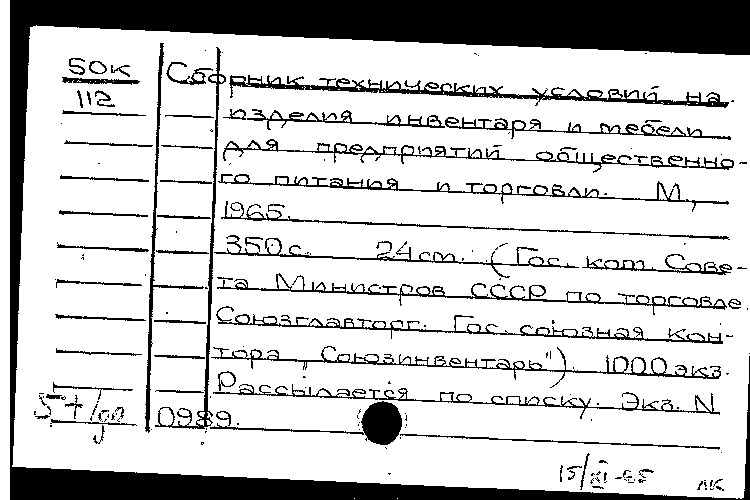 50К
112
Сборник технических условий на
изделия инвентаря и мебели
для предприятий общественно-
го питания и торговли. М.,
1965.
350 с. 24 cm. (Гос. ком. Сове-
та Министров СССР по торговле
Союзглавторг. Гос. союзная кон-
тора „Союзинвентарь"). 1000 экз.
Рассылается по списку. Экз. N
0989.
15/XI-65 ЛК